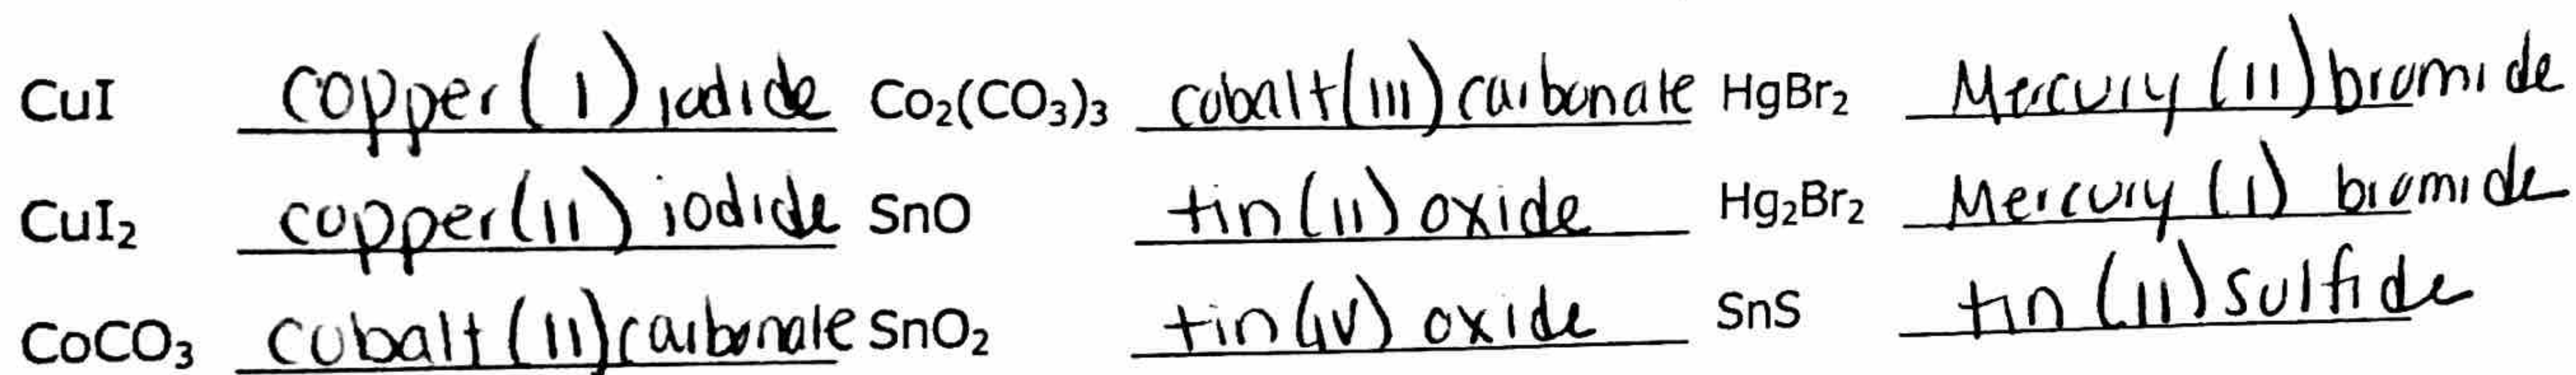 CuI copper(I) iodide Co₂(CO₃)₃ cobalt(III) carbonate HgBr₂ Mercury (II) bromide
CuI₂ copper(II) iodide SnO tin(II) oxide Hg₂Br₂ Mercury (I) bromide
CoCO₃ cobalt (II) carbonate SnO₂ tin(IV) oxide SnS tin (II) sulfide